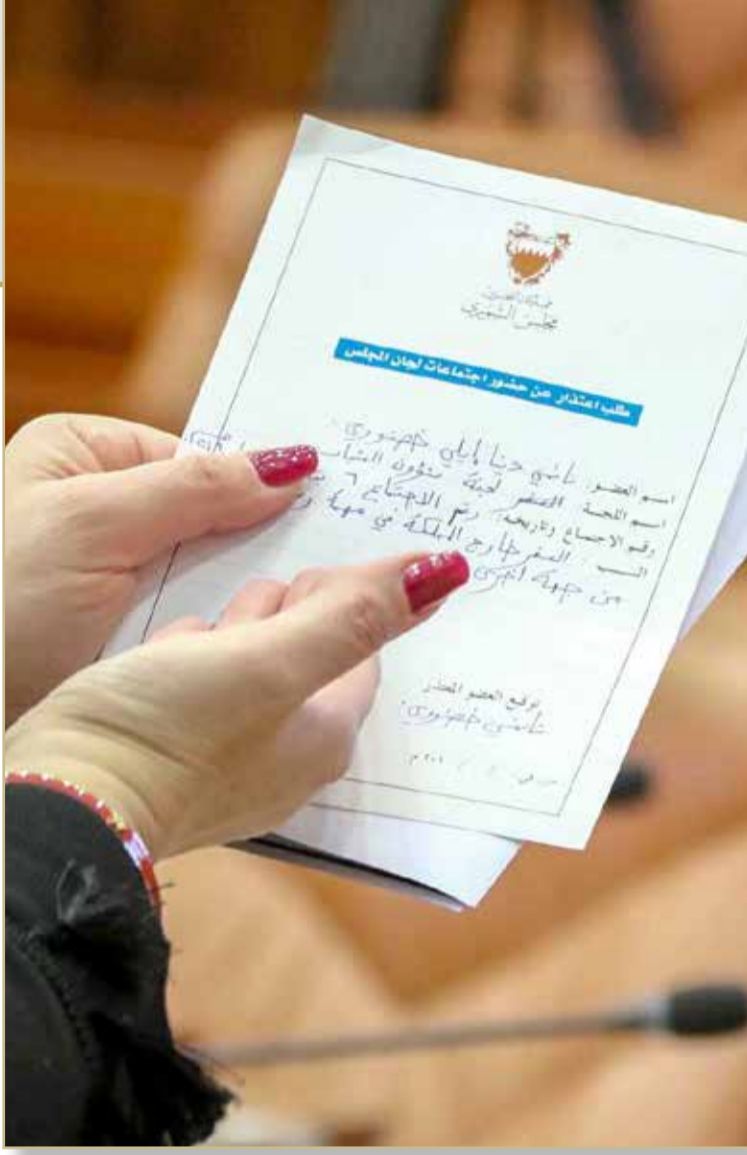 مملكة البحرين
مجلس الشورى
طلب اعتذار عن حضور اجتماعات لجان المجلس
اسم العضو: نانسي دينا إيلي خضوري.
اسم اللجنة: المصغر لجنة شؤون الشباب
رقم الاجتماع وتاريخه: رقم الاجتماع ٦
السبب: السفر خارج المملكة في مهمة
من جهة أخرى
توقيع العضو المعتذر
نانسي خضوري.